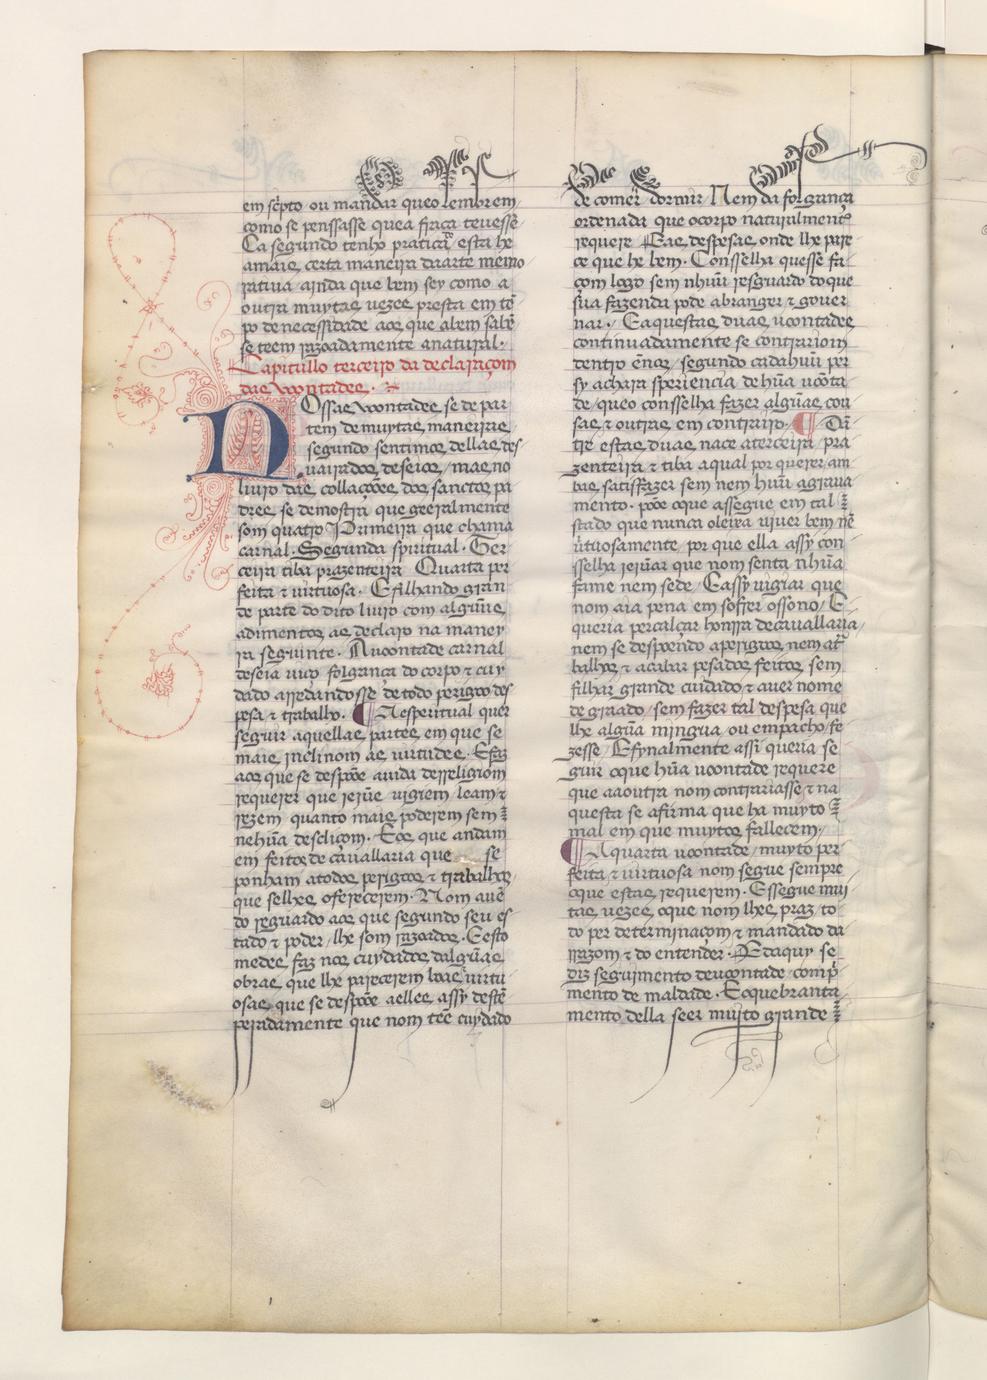 em scrpto ou mandar queo lembrem
como se penssasse quea fraca tevesse
Ca segundo tenho pratica esta he
a mais certa maneira daarte memo
rativa ainda que bem sey como a
outra muytas vezes presta em tē
po de necessidade aos que a bem sabē
se teem razoadamente a natural.
Capitullo terceiro da declaraçom
das vontades.
Nossas vontades se de par
tem de muytas maneiras
segundo sentimos dellas des
vairados deseios, mas no
livro das collaçoões dos sanctos pa
dres se demostra que geeralmente
som quatro Primeira que chama
carnal. Segunda spiritual. Ter
ceira tiba prazenteira Quarta per
feita e virtuosa. E filhando gran
de parte do dito livro com algūus
adimentos as declaro na maney
ra seguinte. A vontade carnal
deseia viço folgança do corpo e cuy
dado arredandosse de todo perigoo des
pesa e trabalho. ¶ A esperitual quer
seguir aquellas partes em que se
mais inclinom as virtudes. E faz
aos que se despōoe a vida de rreligiom
requerer que jejūe vigiem leam e
rezem quanto mais poderem sem
nehūa descliçom. E os que andam
em feitos de cavallaria que se
ponham a todos perigoos e trabalhos
que selhes oferecerem. Nom avē
do reguardo aos que segundo seu es
tado e poder / lhe som razoados. E esto
medes faz nos cuydados dalgūas
obras que lhe parecerem boas e virtu
osas que se despōoe a ellas assy destē
peradamente que nom tēe cuydado
de comer dormir Nem da folgança
ordenada que o corpo naturalmente
requere E as despesas onde lhe pare
ce que he bem. Consselha que sse fa
çom logo sem nhuū resguardo do que
sua fazenda pode abranger e gover
nar. E aquestas duas vontades
continuadamente se contrariom
dentro ē nos / segundo cada huū per
sy achara speriencia de hūa vōta
de / queo consselha fazer algūas cou
sas e outras em contrairo. ¶ An
tre estas duas nace a terceira pra
zenteira e tiba a qual por querer am
bas satisffazer sem nem huū agrava
mento. pōoe o que assegue em tal
stado que nunca o leixa viver bem nē
virtuosamente, por que ella assy con
sselha jejūar que nom senta nhūa
fame nem sede / E assy vigiar que
nom aia pena em soffrer o ssono / E
queria percalçar honrra de cavallaria
nem se despoendo a perigoos nem a tra
balhos e acabar pesados feitos, sem
filhar grande cuidado e aver nome
de graado / sem fazer tal despesa que
lhe algūa mingua / ou empacho fe
zesse / E fynalmente assi queria se
guir o que hūa vontade requere
que a a outra nom contrariasse e na
questa se afirma que ha muyto
mal em que muytos fallecem.
¶ A quarta vontade muyto per
feita e virtuosa nom segue sempre
o que estas requerem. E ssegue mui
tas vezes o que nom lhes praz to
do per determinaçom e mandado da
rrazom e do entender. E daquy se
diz seguimento de vontade comp
mento de maldade. E o quebranta
mento della seer muito grande